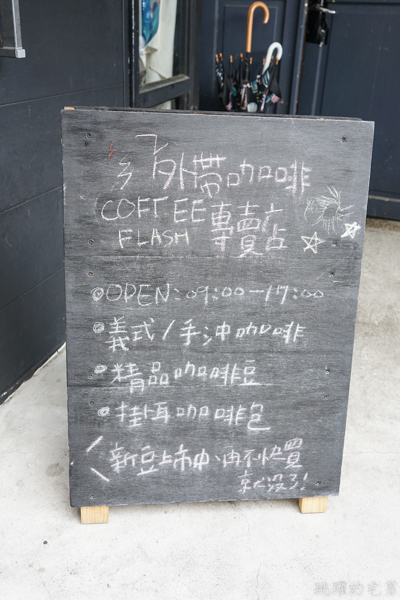 外帶咖啡
COFFEE 專賣店
FLASH
OPEN:09:00-17:00
義式/手沖咖啡
精品咖啡豆
掛耳咖啡包
新豆上市中、再不快買
就沒了!